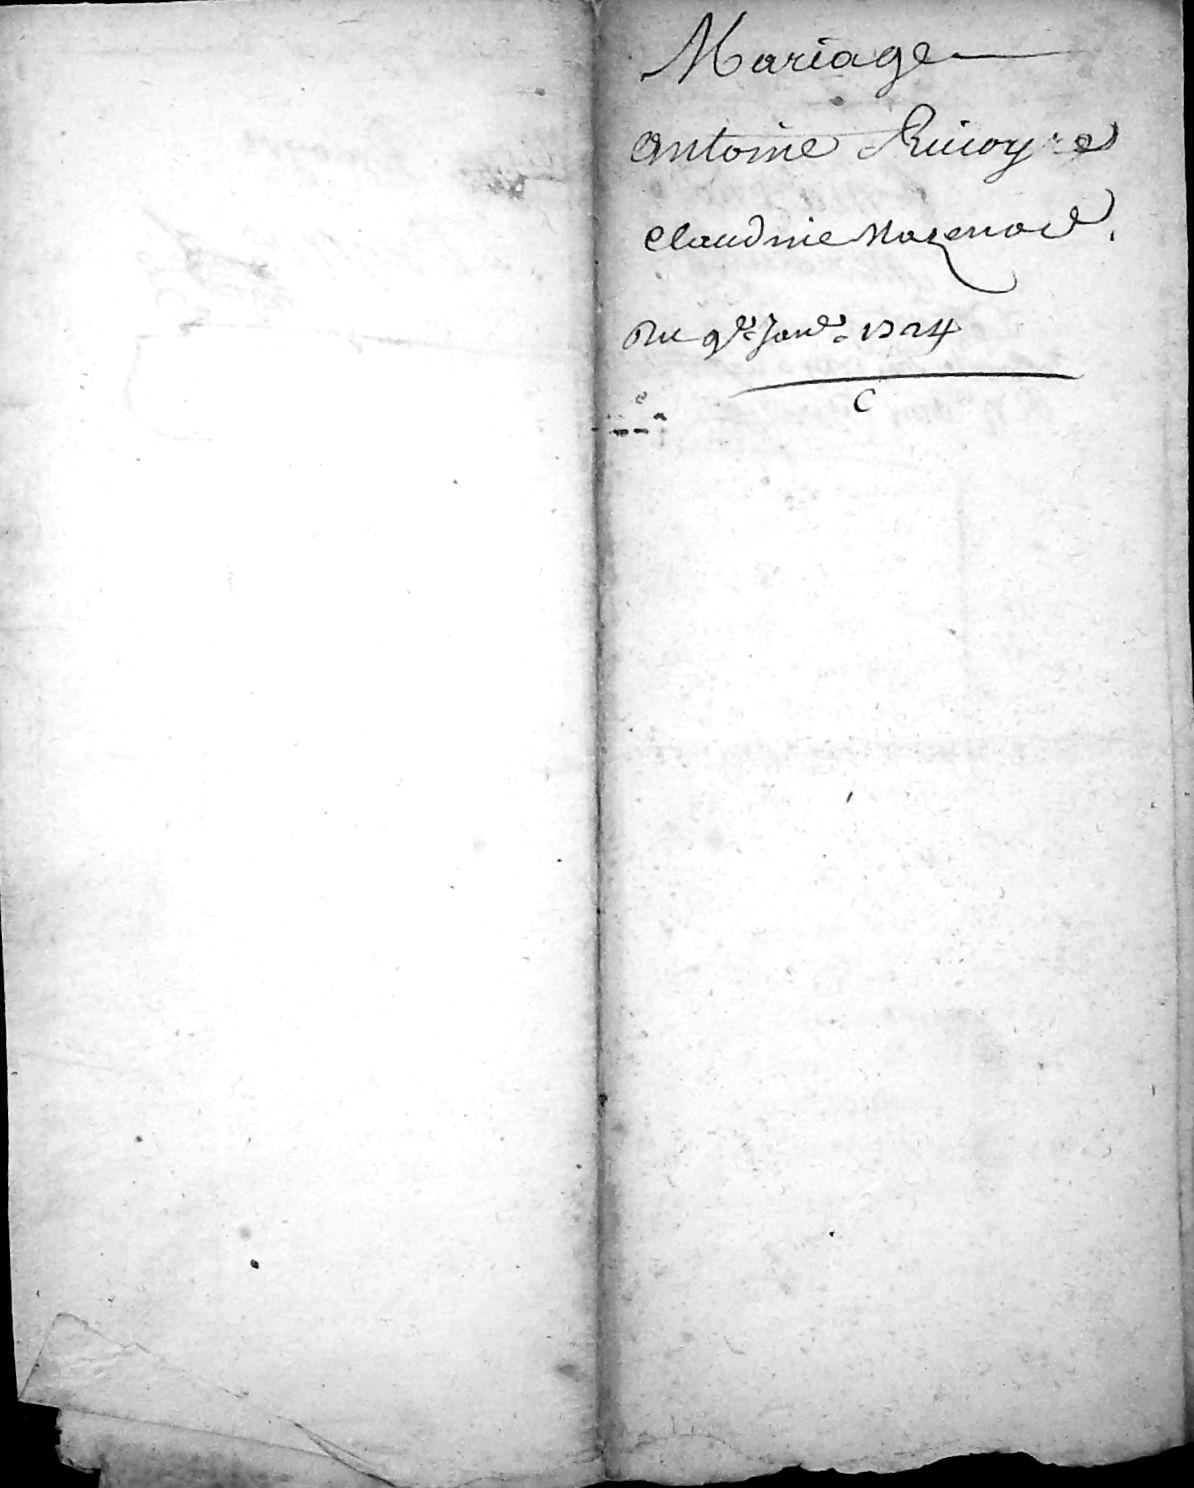 Mariage
Antoine Ruioyre
Claudine Mazenod.
Du 9e Janer 1724
C